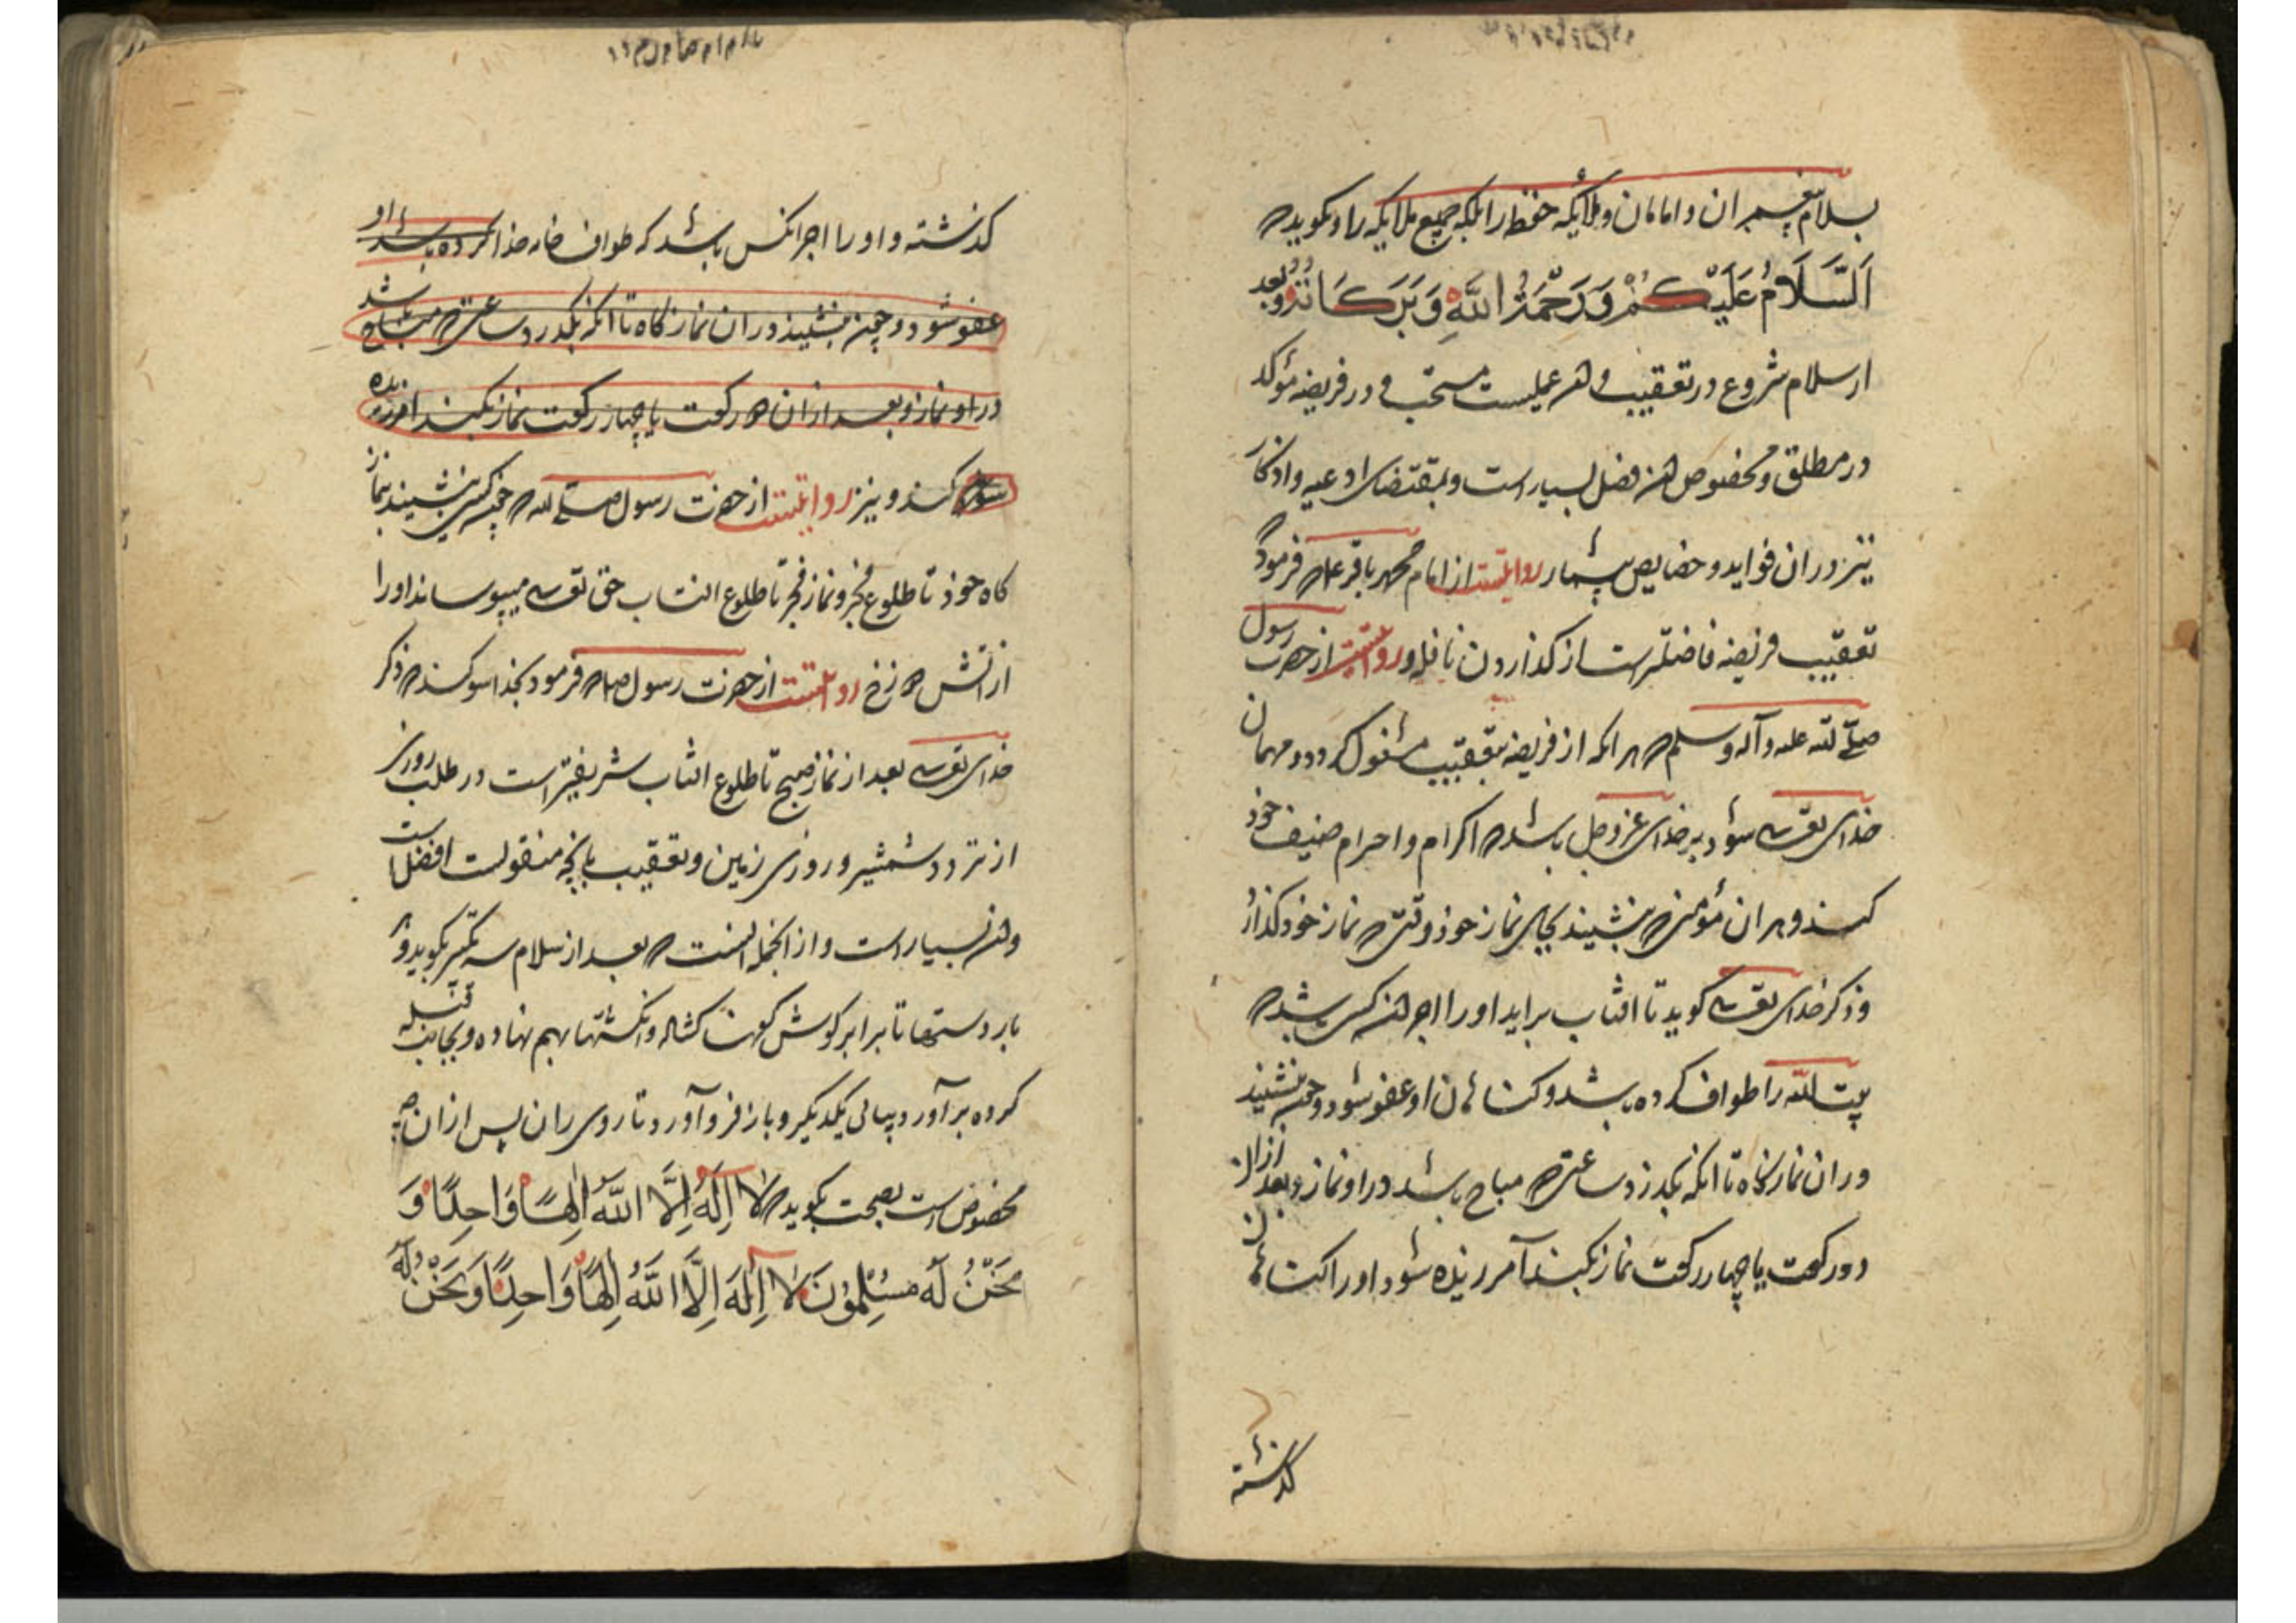 بسلام پیغمبران و امامان و ملایکه حفظه را بلکه جمیع ملایکه را و بکوید که
اَلسَّلَامُ عَلَیْکُمْ وَرَحْمَةُ اللَّهِ وَبَرَکَاتُهُ و بعد
از سلام شروع در تعقیب و هر عملیست مستحب و در فریضه مؤکد
در مطلق و مخصوص هر فضل بسیار است و بمقتضای ادعیه و اذکار
نیز در ان فواید و خصایص بیشمار روایتست از امام محمد باقر ع م که فرمود که
تعقیب فریضه فاضلتر است از کذاردن نافله و روایتست از حضرت رسول
صلی الله علیه وآله وسلم که هر انکه از فریضه بتعقیب مشغول کردد و مهمان
خدای تعالی شود بر خدای عز وجل باشد که اکرام و احرام ضیف خود
کند و هر ان مؤمنی که بنشیند بجای نماز خود وقتی که نماز خود کذارد
و ذکر خدای تعالی کوید تا افتاب براید او را اجر هر کسی باشد که
بیت الله را طواف کرده باشد و کناهان او عفو شود و چون بنشیند
در ان نمازکاه تا انکه بکذرد ساعتی که مباح باشد در او نماز و بعد از ان
دو رکعت یا چهار رکعت نماز بکند آمرزیده شود او را کناهان
کذشته
کذشته و او را اجر انکس باشد که طواف خانه خدا کرده باشد او
عفو شود و چون بنشیند در ان نمازکاه تا انکه بکذرد ساعتی که مباح باشد
در او نماز و بعد از ان دو رکعت یا چهار رکعت نماز بکند امرزیده
شود کند و نیز روایتست از حضرت رسول صلی الله که چون کسی بنشیند بنماز
کاه خود تا طلوع فجر و نماز فجر تا طلوع افتاب حق تعالی میپوساند او را
از اتش دوزخ روایتست از حضرت رسول صلعم که فرمود بخدا سوکند که ذکر
خدای تعالی بعد از نماز صبح تا طلوع افتاب شریفتر است در طلب روزی
از تردد شمشیر و روزی زمین و تعقیب بانچه منقولست افضل است
و هر بسیار است و از انجمله انست که بعد از سلام سه تکبیر بکوید و هر
بار دستها تا برابر کوش کهنا کشاله و انکشتها بهم نهاده و بجانب قبله
کرده برآورد پیاپی یکدیکر و باز فرو آورد تا روی ران پس از ان
مخصوص است بصحت بکوید که لَا اِلَهَ اِلَّا اللَّهُ اِلٰهًا وَاحِدًا وَ
نَحْنُ لَهُ مُسْلِمُونَ لَا اِلَهَ اِلَّا اللَّهُ اِلٰهًا وَاحِدًا وَنَحْنُ لَهُ